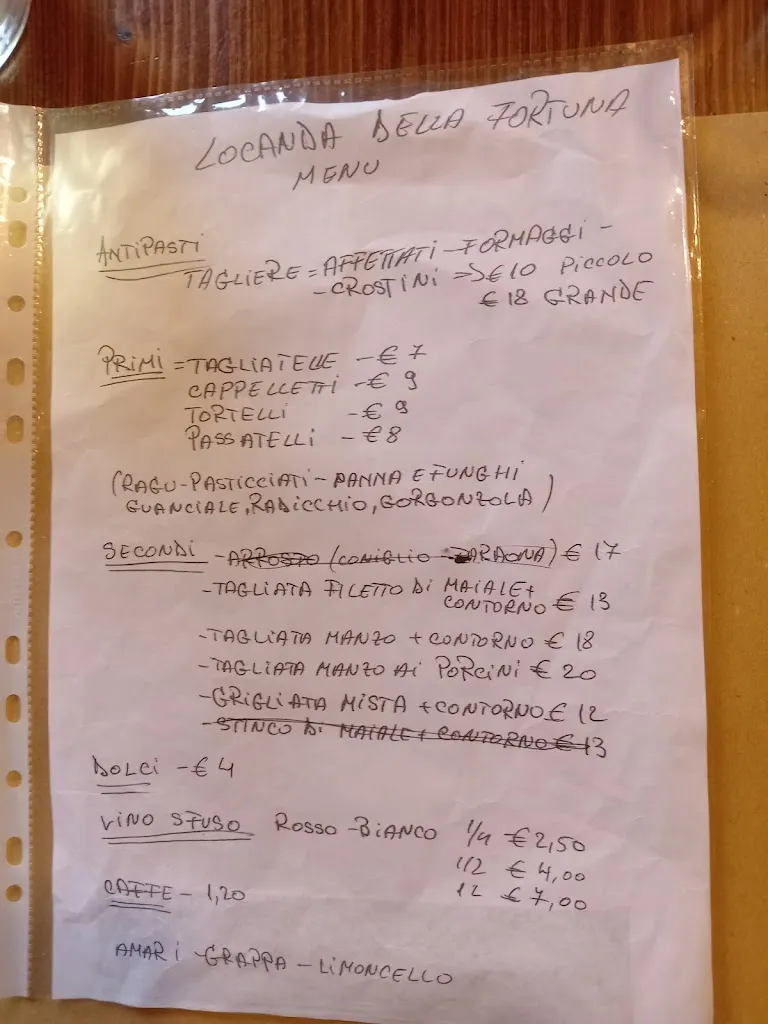 LOCANDA DELLA FORTUNA
MENU
ANTIPASTI
TAGLIERE = AFFETTATI - FORMAGGI -
- CROSTINI => €10 PICCOLO
€ 18 GRANDE
PRIMI = TAGLIATELLE - € 7
CAPPELLETTI - € 9
TORTELLI - € 9
PASSATELLI - € 8
(RAGU - PASTICCIATI - PANNA E FUNGHI
GUANCIALE, RADICCHIO, GORGONZOLA)
SECONDI - ARROSTO (CONIGLIO - FARAONA) € 17
- TAGLIATA FILETTO DI MAIALE +
CONTORNO € 13
- TAGLIATA MANZO + CONTORNO € 18
- TAGLIATA MANZO AI PORCINI € 20
- GRIGLIATA MISTA + CONTORNO € 12
- STINCO DI MAIALE + CONTORNO € 13
DOLCI - € 4
VINO SFUSO ROSSO - BIANCO 1/4 € 2,50
1/2 € 4,00
1 L € 7,00
CAFFE - 1,20
AMARI - GRAPPA - LIMONCELLO